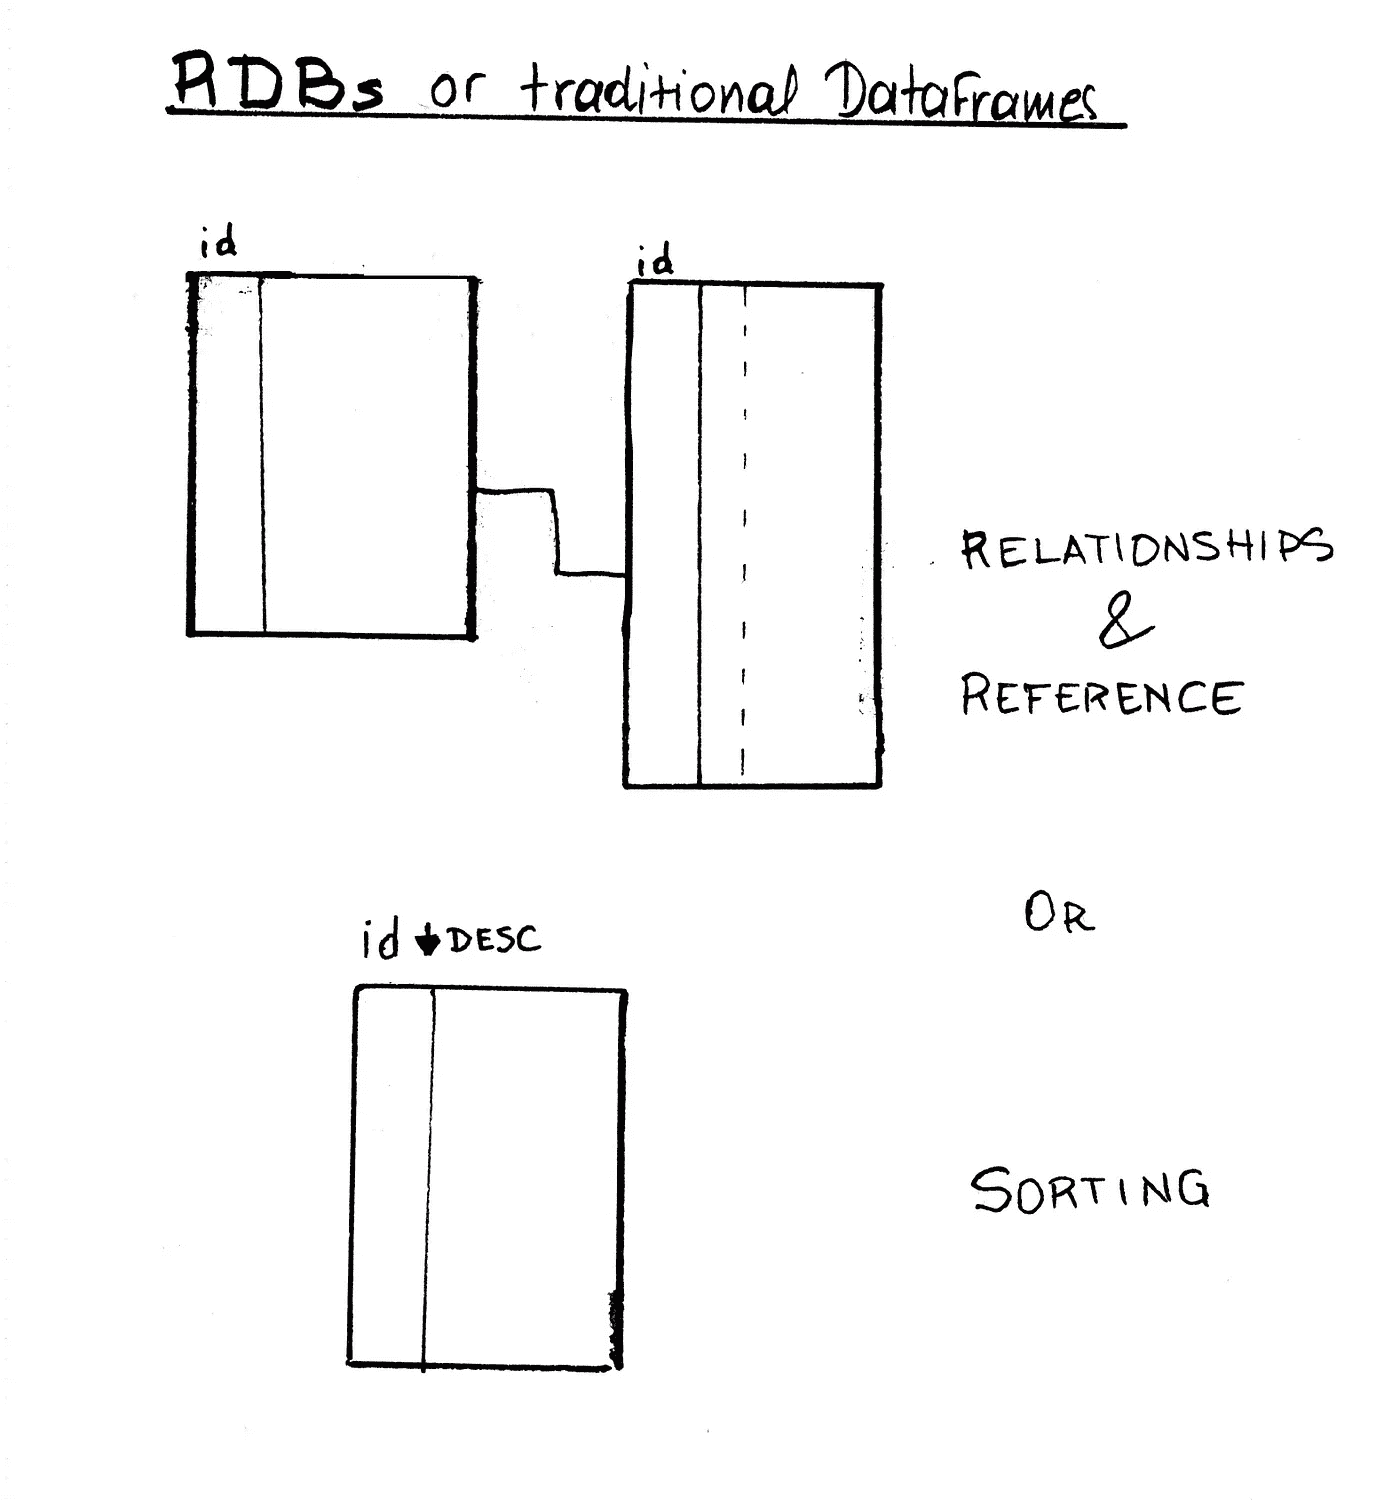 RDBs or traditional DataFrames
id
id
RELATIONSHIPS
&
REFERENCE
OR
id DESC
SORTING